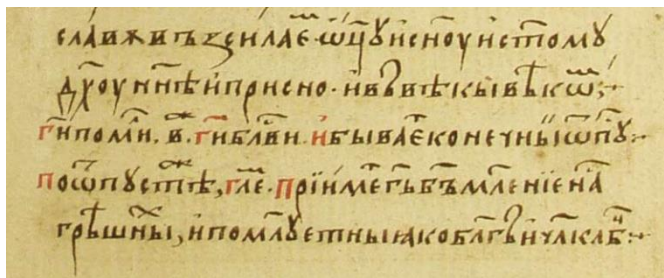 славꙋ въꙁсилаѐ ѿцꙋ и сн҃оу и ст҃омꙋ
дх҃оу ннѣ̃ и присно · и въ вѣкы вѣкѿ ⁘
гиⷭ҇помлⷭ҇и · в҃ · гиⷭ҇блⷭ҇ви · и бываѐ конечныи ѿпꙋⷭ҇ ⁘
по ѿпꙋстѣ, гл҃е · Прїимѐ гь҃ бъ҃ млениⷧ҇е
грѣшны̑ⷯ, и помлꙋеⷧ҇т ны ꙗко блг҃ъ и члк҃олбⷰ҇ ⁘